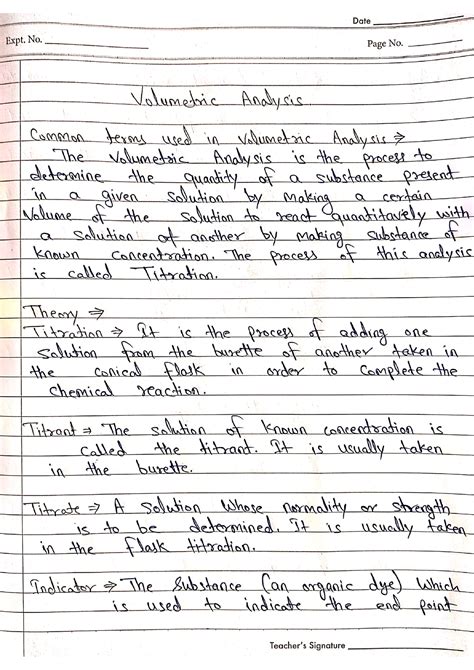 Date
Expt. No.
Page No.
Volumetric Analysis
Common terms used in Volumetric Analysis ⇒
The Volumetric Analysis is the process to
determine the quantity of a substance present
in a given solution by making a certain
Volume of the solution to react quantitavely with
a solution of another by making substance of
known concentration. The process of this analysis
is called Titration.
Theory ⇒
Titration ⇒ It is the process of adding one
solution from the burette of another taken in
the conical flask in order to complete the
chemical reaction.
Titrant ⇒ The solution of known concentration is
called the titrant. It is usually taken
in the burette.
Titrate ⇒ A solution whose normality or strength
is to be determined. It is usually taken
in the flask titration.
Indicator ⇒ The substance (an organic dye) which
is used to indicate the end point
Teacher's Signature